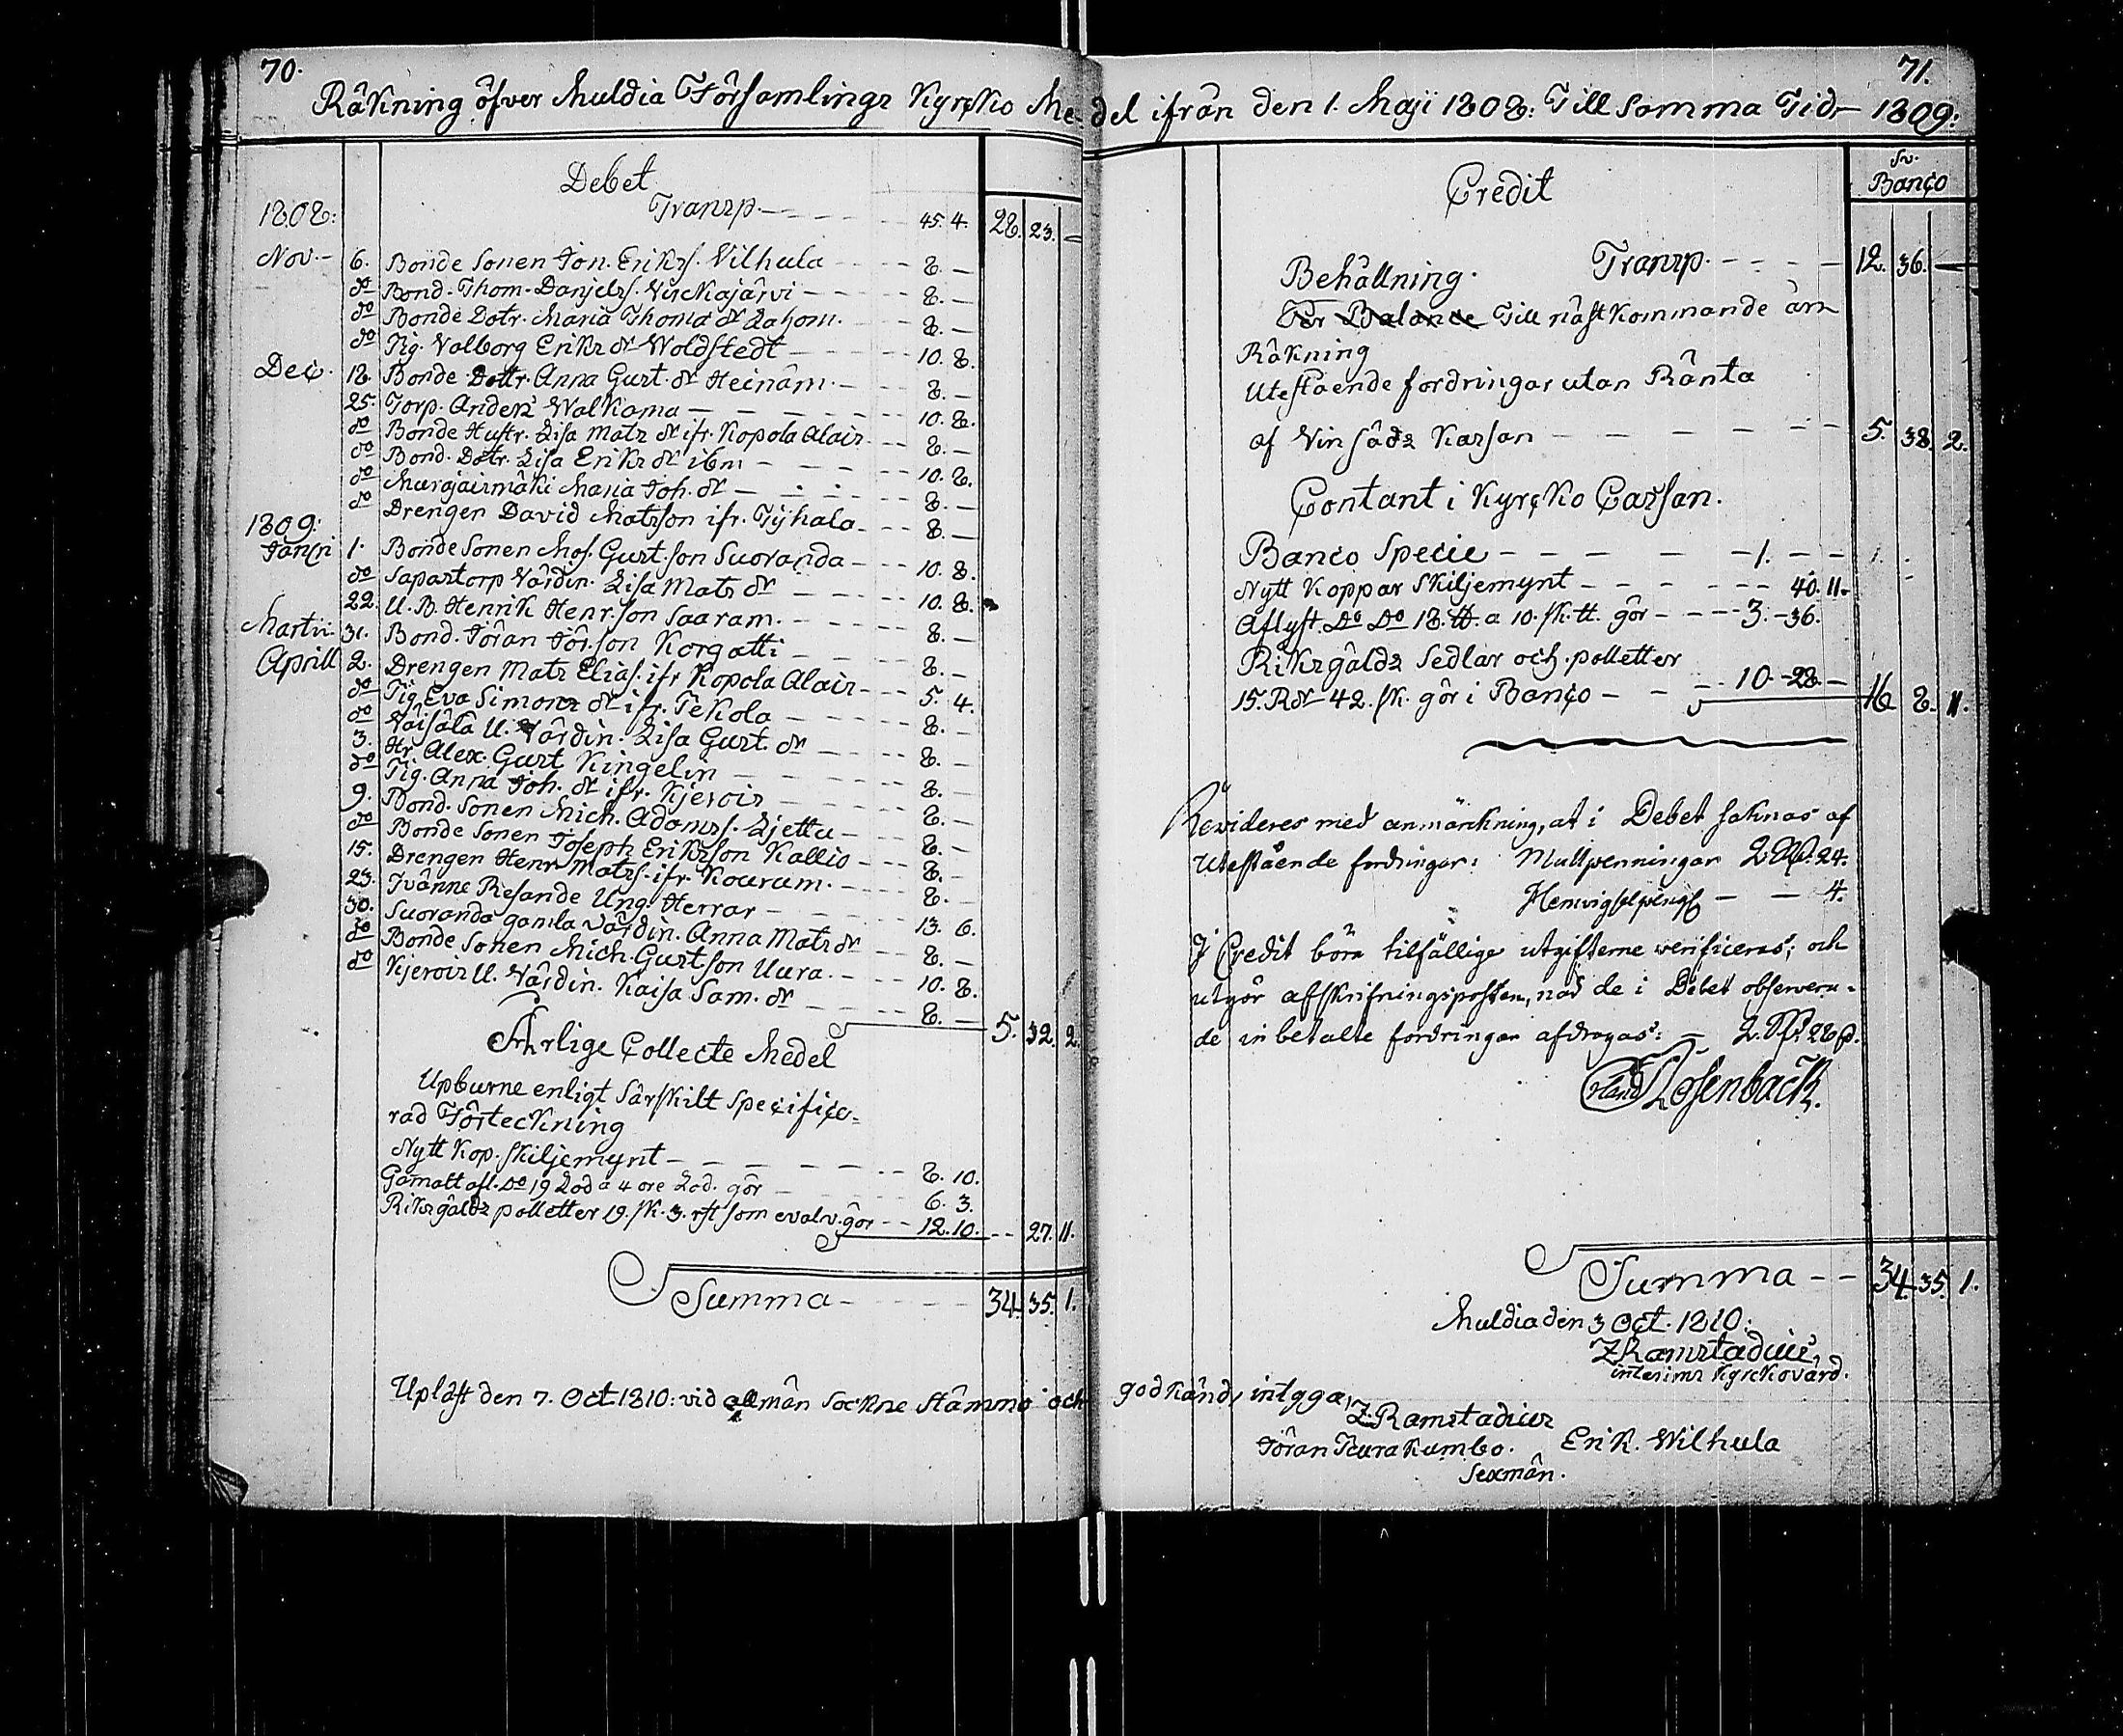 70.
71.
Räkning öfver Muldia Församlings Kyrko Medel ifrån den 1. Maji 1808: Till samma Tid 1809:
Debet
1808: Transp. - - - - 45. 4. 28. 23. -
Nov. - 6. Bonde Sonen Jon. Eriks. Vilhula - - - 8. -
do Bond. Thom. Danjels. Virckajärvi - - - 8. -
do Bonde Dotr. Maria Thoms dr Lahom. - - 8. -
do Pig. Valborg Eriks dr Woldstedt - - - 10. 8.
Dec. 18. Bonde Dottr. Anna Gust. dr Heinäm. - - 8. -
25. Torp. Anders Walkama - - - 10. 8.
do Bonde Hustr. Lisa Mats dr ifr. Kopola Alais - - 8. -
do Bond. Dotr. Lisa Eriks dr ibm - - - 10. 8.
do Murajairmäki Maria Joh. dr - - - 8. -
do Drengen David Matsson ifr. Tyhala - - - 8. -
1809:
Januri 1. Bonde Sonen Mos. Gust.son Suoranda - - - 10. 8.
do Sapastorp Värdin. Lisa Mats dr - - - 10. 8.
22. U. B. Henrik Henr.son Saaram. - - - 8. -
Martii 31. Bond. Jöran Jör.son Korgatti - - - 8. -
Aprill 2. Drengen Mats Elias. ifr Kopola Alais - - - 5. 4.
do Pig. Eva Simons dr ifr. Tekola - - - 8. -
do Väisälä U. Värdin. Lisa Gust. dr - - - 8. -
3. Hr. Alex. Gust Kingelin - - - 8. -
do Pig. Anna Joh. dr ifr. Kjerois - - - 8. -
9. Bond. Sonen Mich. Adams. Ljettu - - - 8. -
do Bonde Sonen Joseph Eriksson Kallio - - - 8. -
15. Drengen Henr. Mats. ifr. Kourum. - - - 8. -
23. Tvänne Resande Ung. Herrar - - - 13. 6.
30. Suoranda gamla Värdin. Anna Mats dr - - 8. -
do Bonde Sonen Mich. Gustson Uura. - - 10. 8.
do Kjerois U. Värdin. Kaisa Sam. dr - - - 8. - 5. 32. 2.
Ährlige Collecte Medel
Upburne enligt Särskilt Specifice-
rad Förteckning
Nytt Kop. Skiljemynt - - - - - 8. 10.
Gamalt afl. Do 19 Lod a 4 öre Lod. gör - - 6. 3.
Riksgälds polletter 19. sk. 3. rst som evalv. gör - - 12. 10. - - 27. 11.
Summa - - - - 34. 35. 1.
Upläst den 7. Oct. 1810: vid allmän Sockne Stämma och godkänd, intyga,
Sv. Banco
Credit
Transp. - - - - 12. 36. -
Behållning.
Per Balance Till nästkommande års
Räkning
Utestående fordringar utan Ränta
af Vin Säds Kassan - - - - - 5. 38. 2.
Contant i Kyrcko Cassan.
Banco Specie - - - - 1. - - 1.
Nytt Koppar Skiljemynt - - - - - 40. 11.
Aflyst. Do Do 18. tt. a 10. sk. tt. gör - - - 3. - 36.
Riksgälds Sedlar och polletter
15. Rdr 42. sk. gör i Banco - - - 10. - 28. - 16. 8. 11.
Revideres med anmärckning, at i Debet saknas af
Utestående fordringar: Mullpenningar 2 Rd. 24.
" Hemvigselpengr - - 4.
I Credit böra tilfällige utgifterne verificeras; och
utgör afskrifningsposten, när de i Debet observera-
de inbetalte fordringar afdragas: - 2. Rd. 28 s.
Erland Rosenback.
Summa - - 34. 35. 1.
Muldia den 3 Oct. 1810:
Z Ramstadius,
interims Kyrckovärd.
Z. Ramstadius
Jöran Tuurakumbo. Erik. Wilhula
Sexmän.